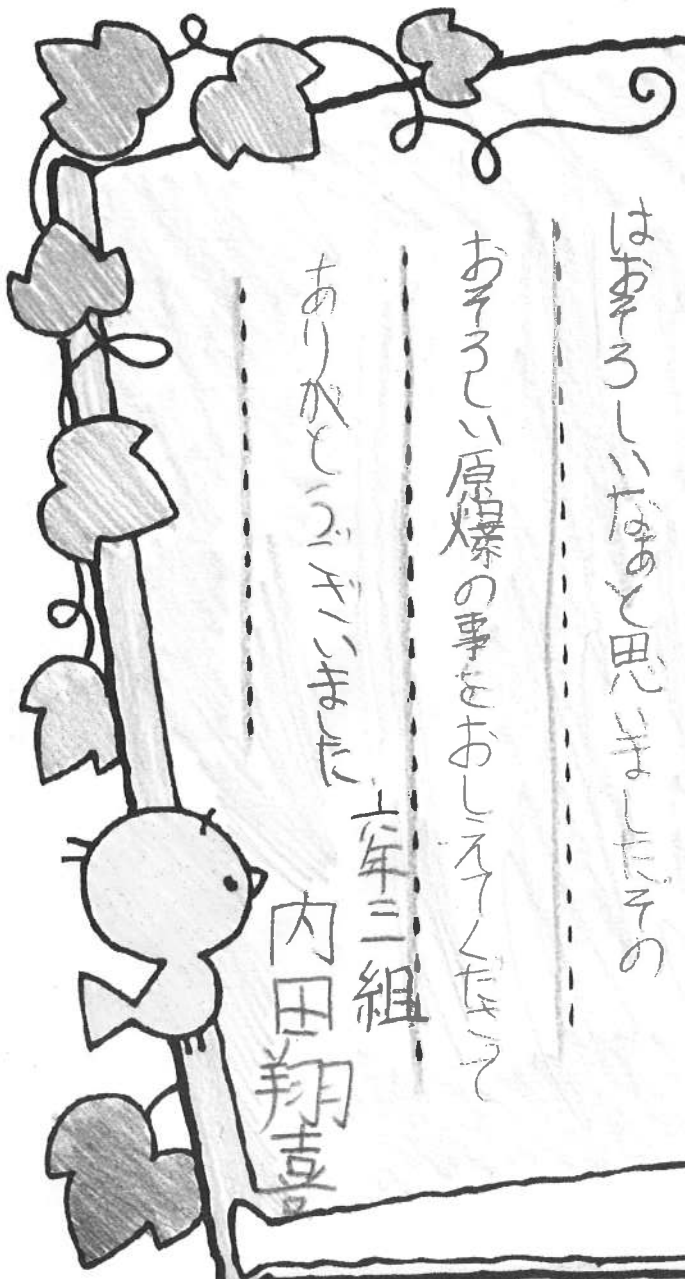 はおそろしいなあと思いましたその
おそろしい原爆の事をおしえてくださって
ありがとうございました
六年三組
内田翔喜